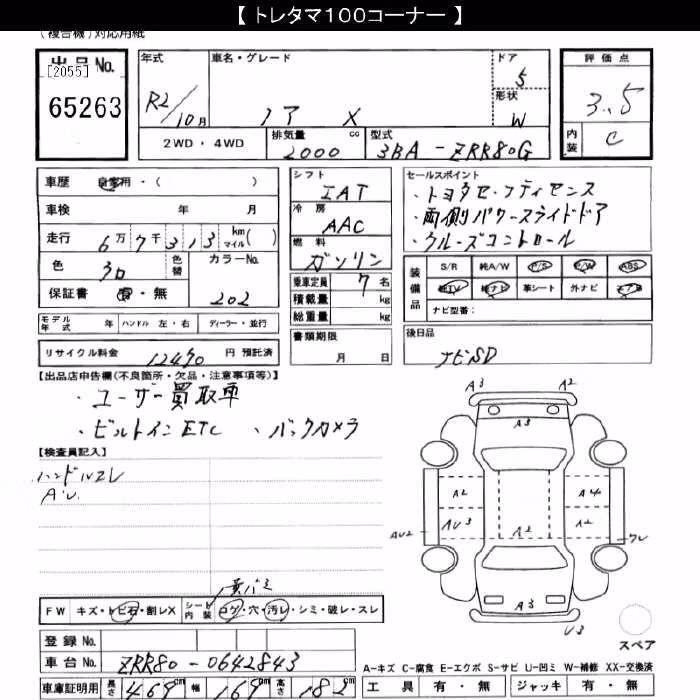 【 トレタマ１００コーナー 】
(複合機)対応用紙
出品 No.
[2055]
65263
年式
R2/10月
車名・グレード
ノア X
ドア
5
形状
W
評価点
3.5
内装
C
2WD・4WD
排気量 cc
2000
型式
3BA-ZRR80G
車歴 自家用・( )
車検 年 月
走行 6万7千313 km マイル( )
色 色替 カラーNo.
202
保証書 有・無
モデル年式 年 ハンドル 左・右 ディーラー・並行
リサイクル料金 12490 円 預託済
シフト
IAT
冷房
AAC
燃料
ガソリン
乗車定員 7 名
積載量 kg
総重量 kg
書類期限
月 日
セールスポイント
・トヨタセーフティセンス
・両側パワースライドドア
・クルーズコントロール
装備品
S/R 純A/W P/S P/W ABS
純TV 純ナビ 革シート 外ナビ エアB
ナビ型番:
後日品
ナビSD
【出品店申告欄(不良箇所・欠品・注意事項等)】
・ユーザー買取車
・ビルトインETC ・バックカメラ
【検査員記入】
ハンドルスレ
AU
A3 A2
A3
A2 A4
AU2 AU3 A2 A2 クレ
A3
U3
スペア
黄バミ
FW キズ・トビ石・割レX シート内装 コゲ・穴・汚レ・シミ・破レ・スレ
登録 No.
車台 No. ZRR80-0642843
車庫証明用 長さ 469 cm 幅 169 cm 高さ 182 cm
A-キズ C-腐食 E-エクボ S-サビ U-凹ミ W-補修 XX-交換済
工具 有・無 ジャッキ 有・無